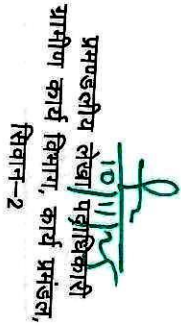 10/11/25
प्रमण्डलीय लेखा पदाधिकारी
ग्रामीण कार्य विभाग, कार्य प्रमंडल,
सिवान-2